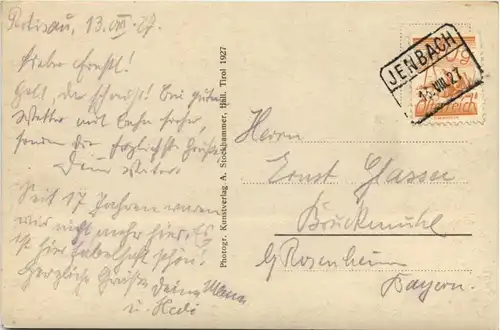 Pertisau, 13.VIII.27.
Lieber Ernstl!
Gell, da schaust! Bei gutem
Wetter mit Bahn hierher,
senden die herzlichsten Grüße
Deine
Seit 17 Jahren waren
wir nicht mehr hier. Es
ist hier fabelhaft schön!
Herzliche Grüße Deine Mama
u. Hedi
Photogr. Kunstverlag A. Stockhammer, Hall, Tirol 1927
JENBACH
13.VIII.27
Österreich
Herrn
Ernst Glasser
Bruckmühl
b/Rosenheim
Bayern.